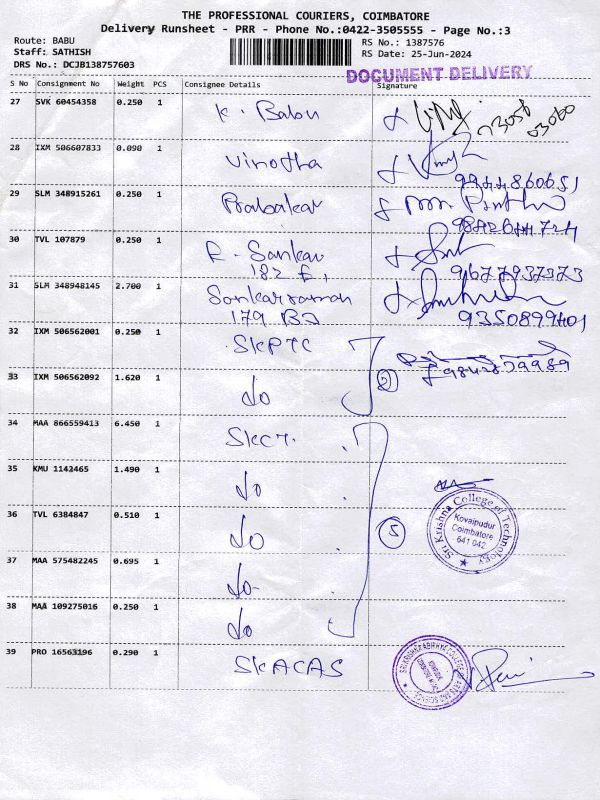 THE PROFESSIONAL COURIERS, COIMBATORE
Delivery Runsheet - PRR - Phone No.:0422-3505555 - Page No.:3
Route: BABU
Staff: SATHISH
DRS No.: DCJB138757603
RS No.: 1387576
RS Date: 25-Jun-2024
DOCUMENT DELIVERY
S No Consignment No Weight PCS Consignee Details Signature
27 SVK 60454358 0.250 1 K. Babu
28 IXM 506607833 0.090 1 Vinotha
9944860651
29 SLM 348915261 0.250 1 Prabakar
30 TVL 107879 0.250 1 R. Sankar
182 E1
9677937373
31 SLM 348948145 2.700 1 Sankarraman
179 B3
9350899401
32 IXM 506562001 0.250 1 SKPTC
33 IXM 506562092 1.620 1 do
2
34 MAA 866559413 6.450 1 SKCT.
35 KMU 1142465 1.490 1 do
36 TVL 6384847 0.510 1 do
5
Sri Krishna College of Technology
Kovaipudur
Coimbatore
641 042
37 MAA 575482245 0.695 1 do
38 MAA 109275016 0.250 1 do
39 PRO 16563196 0.290 1 SKACAS